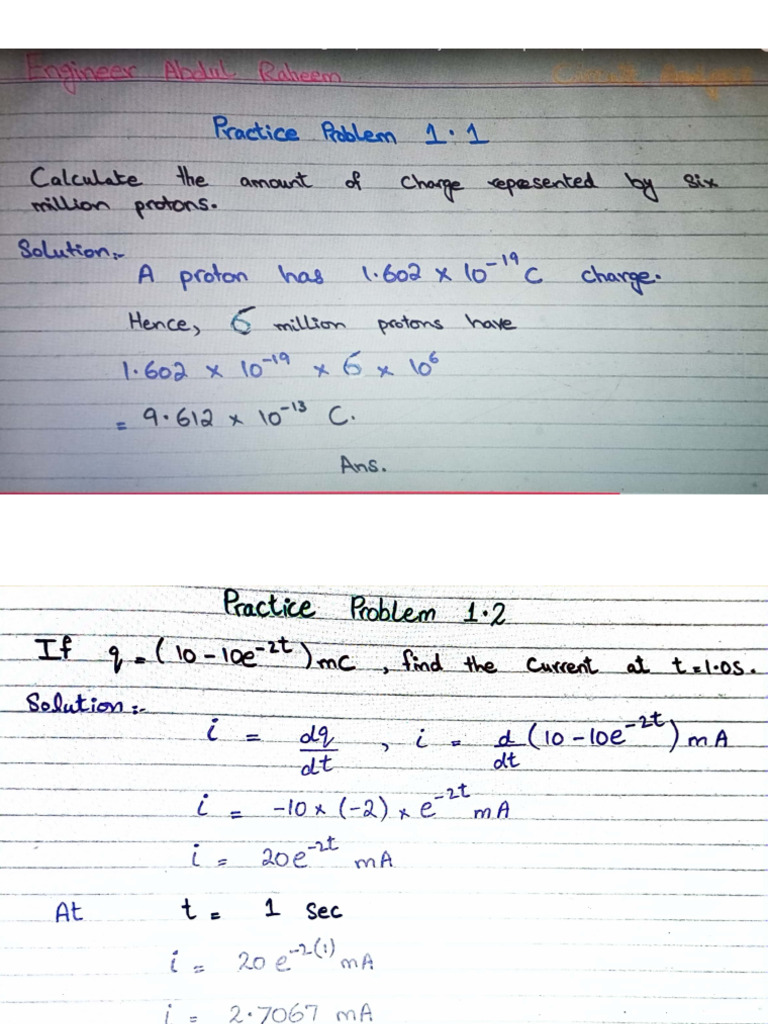 Engineer Abdul Raheem Circuit Analysis
Practice Problem 1.1
Calculate the amount of charge represented by six
million protons.
Solution:-
A proton has 1.602 × 10⁻¹⁹ C charge.
Hence, 6 million protons have
1.602 × 10⁻¹⁹ × 6 × 10⁶
= 9.612 × 10⁻¹³ C.
Ans.
Practice Problem 1.2
If q = (10 - 10e⁻²ᵗ) mC , find the current at t = 1.0s.
Solution:-
i = dq/dt , i = d/dt (10 - 10e⁻²ᵗ) mA
i = -10 × (-2) × e⁻²ᵗ mA
i = 20e⁻²ᵗ mA
At t = 1 sec
i = 20 e⁻²⁽¹⁾ mA
i = 2.7067 mA